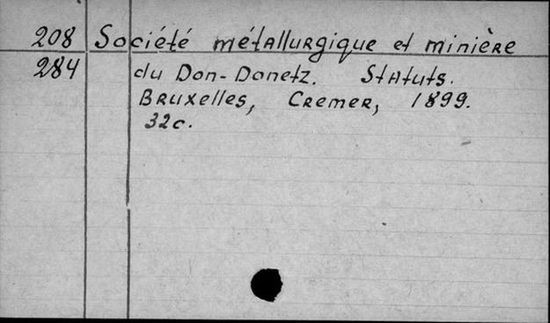 208 Société métallurgique et minière
284 du Don-Donetz. Statuts.
Bruxelles, Cremer, 1899.
32c.